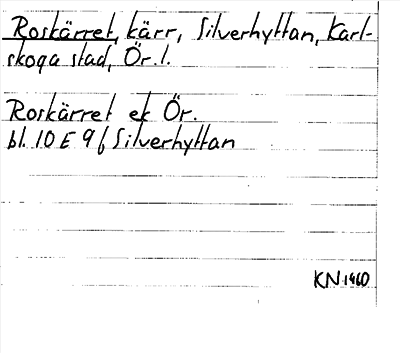 Roskärret, kärr, Silverhyttan, Karl-
skoga stad, Ör. l.
Roskärret ek Ör.
bl. 10 E 9 f Silverhyttan
KN 1960